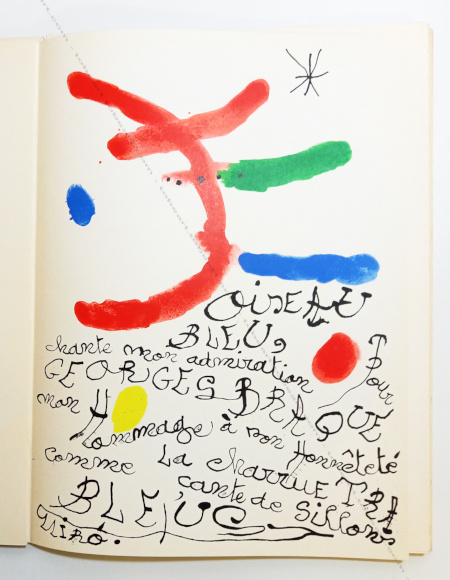 OISEAU
BLEU,
chante mon admiration Pour
GEORGES BRAQUE
mon Hommage à son Honnêteté
comme La charrue TRA
çante de Sillons
BLEUS
Miró.